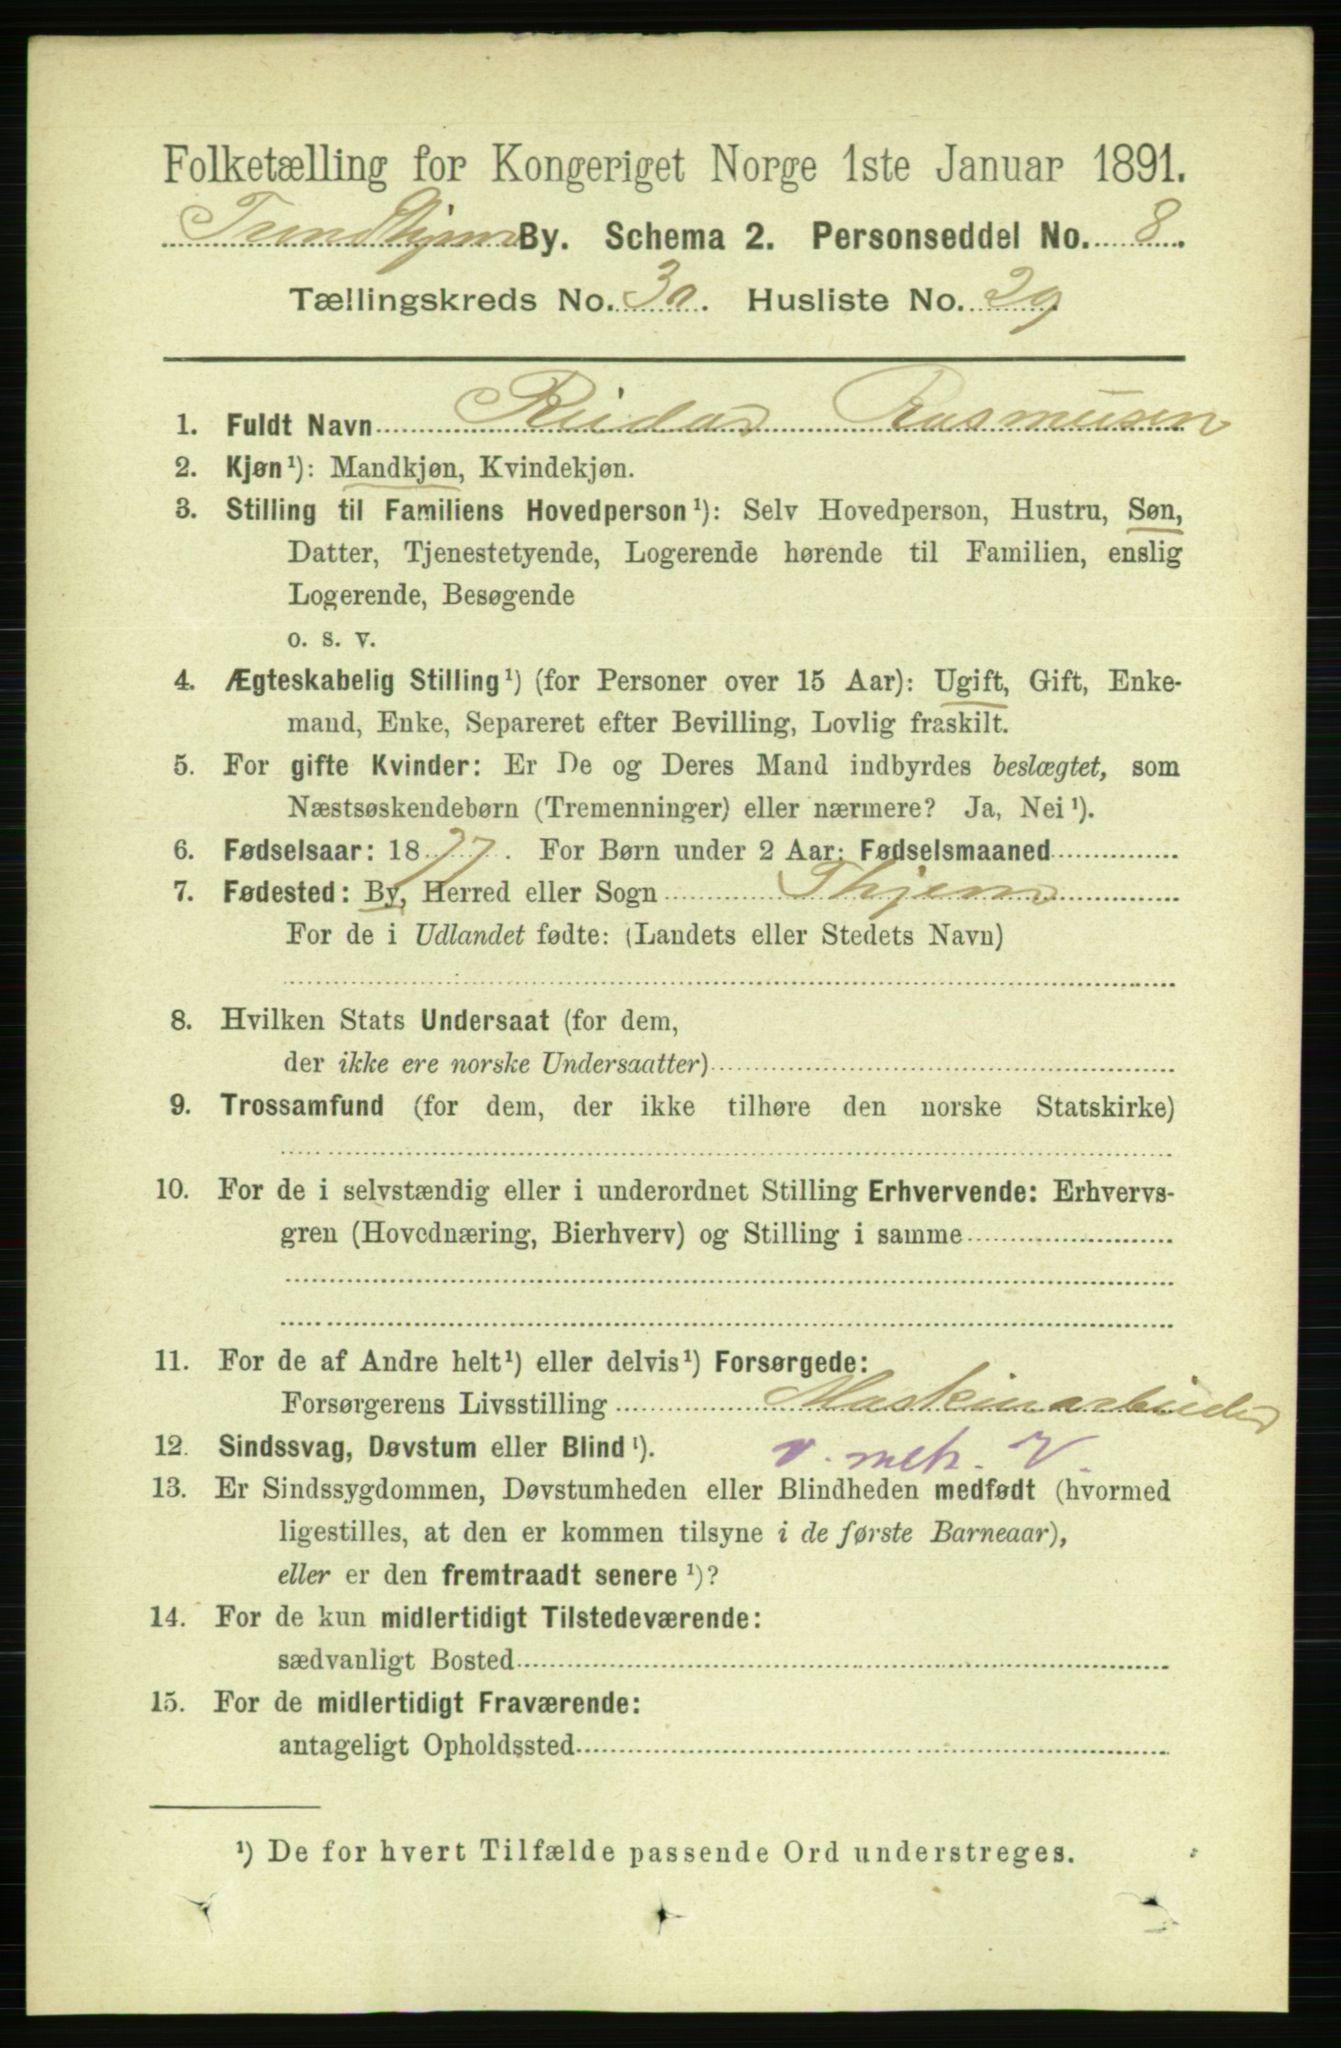 Folketælling for Kongeriget Norge 1ste Januar 1891.
Trondhjem By. Schema 2. Personseddel No. 8.
Tællingskreds No. 30. Husliste No. 29
1. Fuldt Navn Reidar Rasmusen
2. Kjøn¹): Mandkjøn, Kvindekjøn.
3. Stilling til Familiens Hovedperson¹): Selv Hovedperson, Hustru, Søn,
Datter, Tjenestetyende, Logerende hørende til Familien, enslig
Logerende, Besøgende
o. s. v.
4. Ægteskabelig Stilling¹) (for Personer over 15 Aar): Ugift, Gift, Enke-
mand, Enke, Separeret efter Bevilling, Lovlig fraskilt.
5. For gifte Kvinder: Er De og Deres Mand indbyrdes beslægtet, som
Næstsøskendebørn (Tremenninger) eller nærmere? Ja, Nei¹).
6. Fødselsaar: 1877. For Børn under 2 Aar: Fødselsmaaned
7. Fødested: By, Herred eller Sogn Thjem
For de i Udlandet fødte: (Landets eller Stedets Navn)
8. Hvilken Stats Undersaat (for dem,
der ikke ere norske Undersaatter)
9. Trossamfund (for dem, der ikke tilhøre den norske Statskirke)
10. For de i selvstændig eller i underordnet Stilling Erhvervende: Erhvervs-
gren (Hovednæring, Bierhverv) og Stilling i samme
11. For de af Andre helt¹) eller delvis¹) Forsørgede:
Forsørgerens Livsstilling Maskinarbeider
12. Sindssvag, Døvstum eller Blind¹). v. mek. V.
13. Er Sindssygdommen, Døvstumheden eller Blindheden medfødt (hvormed
ligestilles, at den er kommen tilsyne i de første Barneaar),
eller er den fremtraadt senere¹)?
14. For de kun midlertidigt Tilstedeværende:
sædvanligt Bosted
15. For de midlertidigt Fraværende:
antageligt Opholdssted
¹) De for hvert Tilfælde passende Ord understreges.